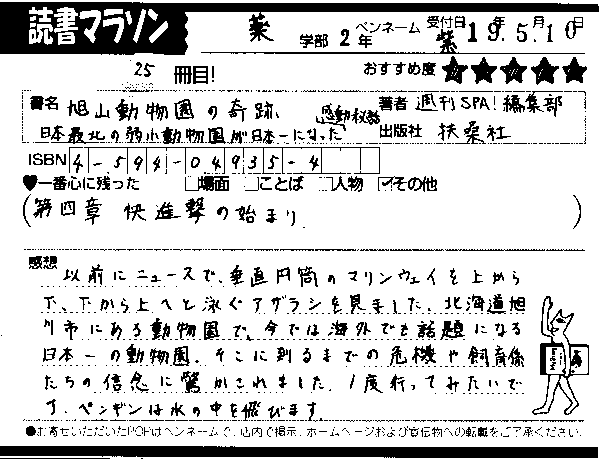 読書マラソン
薬 学部 2年 ペンネーム 紫 受付日 19年5月10日
25 冊目! おすすめ度 ★★★★★
書名 旭山動物園の奇跡 著者 週刊SPA!編集部
日本最北の弱小動物園が日本一になった感動秘話 出版社 扶桑社
ISBN 4-594-04935-4
♥一番心に残った □場面 □ことば □人物 ☑その他
(第四章 快進撃の始まり)
感想
以前にニュースで、垂直円筒のマリンウェイを上から
下、下から上へと泳ぐアザラシを見ました。北海道旭
川市にある動物園で、今では海外でも話題になる
日本一の動物園。そこに到るまでの危機や飼育係
たちの信念に驚かされました。1度行ってみたいで
す。ペンギンは水の中を飛びます。
●お寄せいただいたPOPはペンネームで、店内で掲示、ホームページおよび宣伝物への転載をご了承ください。